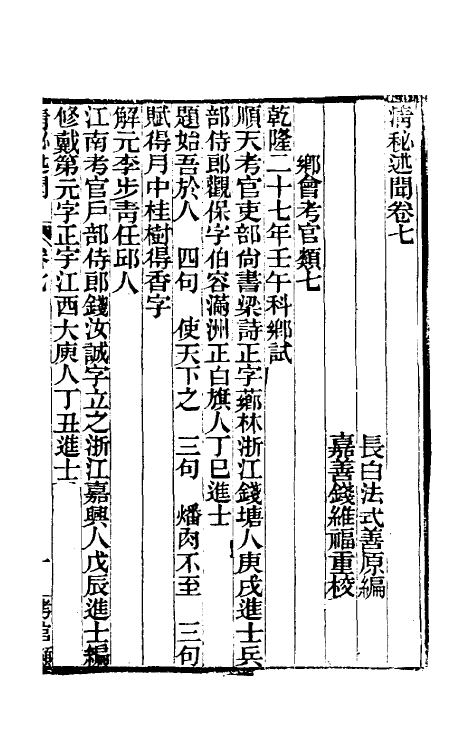 清秘述聞卷七
長白法式善原編
嘉善錢維福重校
鄉會考官類七
乾隆二十七年壬午科鄉試
順天考官吏部尚書梁詩正字薌林浙江錢塘人庚戌進士兵
部侍郎觀保字伯容滿洲正白旗人丁巳進士
題始吾於人　四句　使天下之　三句　燔肉不至　三句
賦得月中桂樹得香字
解元李步青任邱人
江南考官戶部侍郎錢汝誠字立之浙江嘉興人戊辰進士編
修戴第元字正宇江西大庾人丁丑進士
清秘述聞
卷七
一
考官類